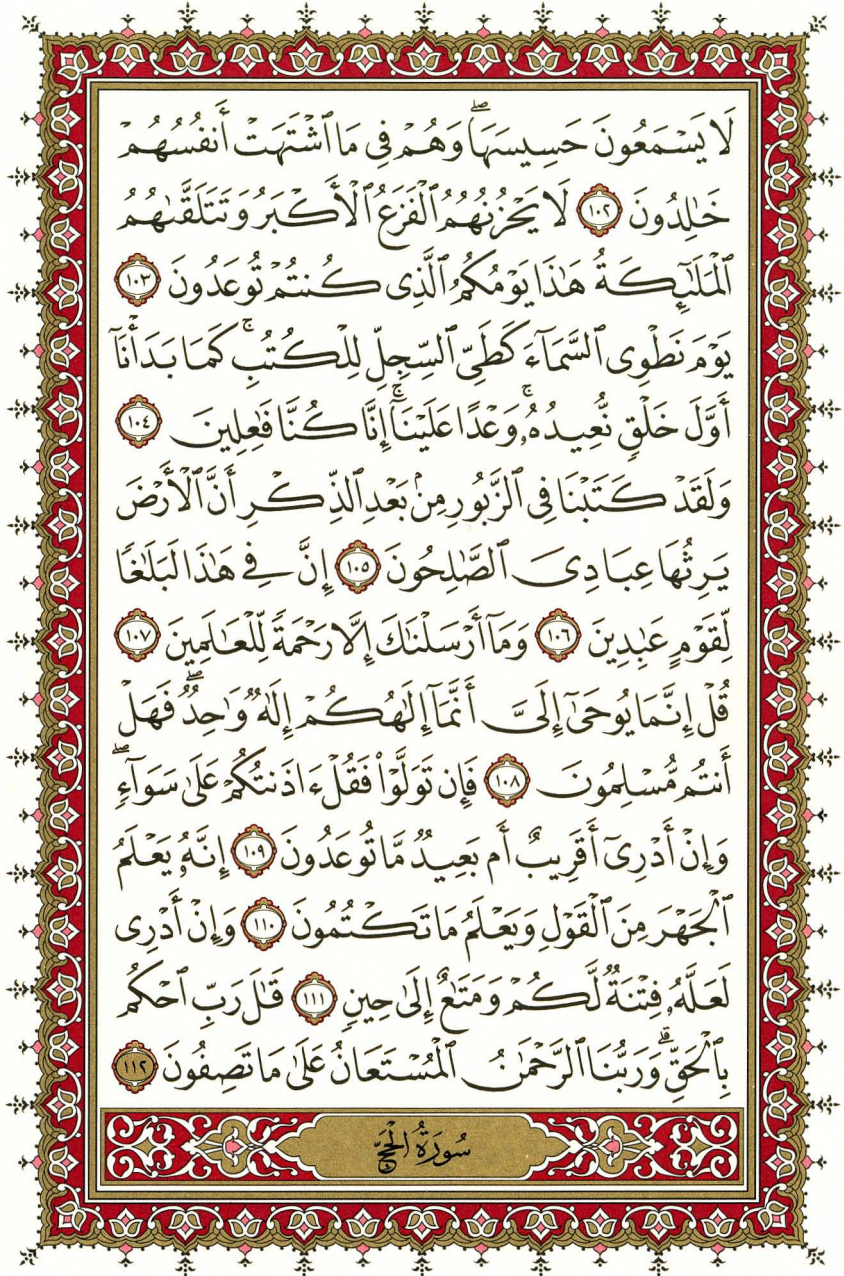 لَا يَسۡمَعُونَ حَسِيسَهَاۖ وَهُمۡ فِي مَا ٱشۡتَهَتۡ أَنفُسُهُمۡ
خَٰلِدُونَ ١٠٢ لَا يَحۡزُنُهُمُ ٱلۡفَزَعُ ٱلۡأَكۡبَرُ وَتَتَلَقَّىٰهُمُ
ٱلۡمَلَٰٓئِكَةُ هَٰذَا يَوۡمُكُمُ ٱلَّذِي كُنتُمۡ تُوعَدُونَ ١٠٣
يَوۡمَ نَطۡوِي ٱلسَّمَآءَ كَطَيِّ ٱلسِّجِلِّ لِلۡكُتُبِۚ كَمَا بَدَأۡنَآ
أَوَّلَ خَلۡقٖ نُّعِيدُهُۥۚ وَعۡدًا عَلَيۡنَآۚ إِنَّا كُنَّا فَٰعِلِينَ ١٠٤
وَلَقَدۡ كَتَبۡنَا فِي ٱلزَّبُورِ مِنۢ بَعۡدِ ٱلذِّكۡرِ أَنَّ ٱلۡأَرۡضَ
يَرِثُهَا عِبَادِيَ ٱلصَّٰلِحُونَ ١٠٥ إِنَّ فِي هَٰذَا لَبَلَٰغٗا
لِّقَوۡمٍ عَٰبِدِينَ ١٠٦ وَمَآ أَرۡسَلۡنَٰكَ إِلَّا رَحۡمَةٗ لِّلۡعَٰلَمِينَ ١٠٧
قُلۡ إِنَّمَا يُوحَىٰٓ إِلَيَّ أَنَّمَآ إِلَٰهُكُمۡ إِلَٰهٞ وَٰحِدٞۖ فَهَلۡ
أَنتُم مُّسۡلِمُونَ ١٠٨ فَإِن تَوَلَّوۡاْ فَقُلۡ ءَاذَنتُكُمۡ عَلَىٰ سَوَآءٖۖ
وَإِنۡ أَدۡرِيٓ أَقَرِيبٌ أَم بَعِيدٞ مَّا تُوعَدُونَ ١٠٩ إِنَّهُۥ يَعۡلَمُ
ٱلۡجَهۡرَ مِنَ ٱلۡقَوۡلِ وَيَعۡلَمُ مَا تَكۡتُمُونَ ١١٠ وَإِنۡ أَدۡرِي
لَعَلَّهُۥ فِتۡنَةٞ لَّكُمۡ وَمَتَٰعٌ إِلَىٰ حِينٖ ١١١ قَٰلَ رَبِّ ٱحۡكُم
بِٱلۡحَقِّۗ وَرَبُّنَا ٱلرَّحۡمَٰنُ ٱلۡمُسۡتَعَانُ عَلَىٰ مَا تَصِفُونَ ١١٢
سُورَةُ الْحَجِّ